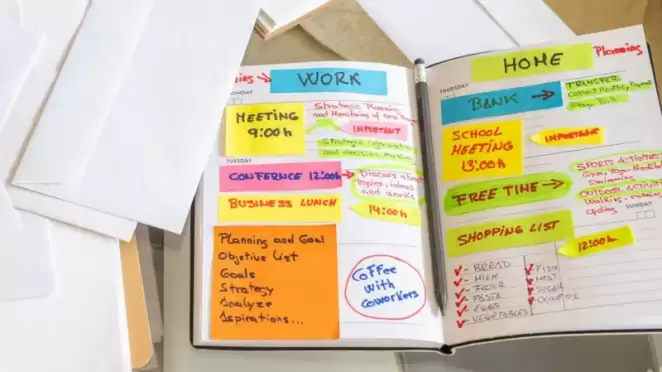 WORK
MONDAY
MEETING
9:00h
Strategic Planning
and Monitoring of
IMPORTANT
Strategic Information
and decision Making
TUESDAY
CONFERNCE 12:00h
Discuss about
topics, ideas
and works
BUSINESS LUNCH
14:00h
Planning and Goal
Objetive List
Goals
Strategy
Analyze
Aspirations...
Coffee
with
coworkers
HOME
Planning
THURSDAY
BANK
TRANSFER
Collect Monthly Payment
Pay Bill
SCHOOL
MEETING
13:00h
IMPORTANT
FREE TIME
SPORTS
Gym, Yoga
Swimming
OUTDOOR
Walking
Cycling
SUNDAY
SHOPPING LIST
12:00h
BREAD
MILK
FLOUR
PASTA
EGGS
VEGETABLES
FISH
MEAT
SUGAR